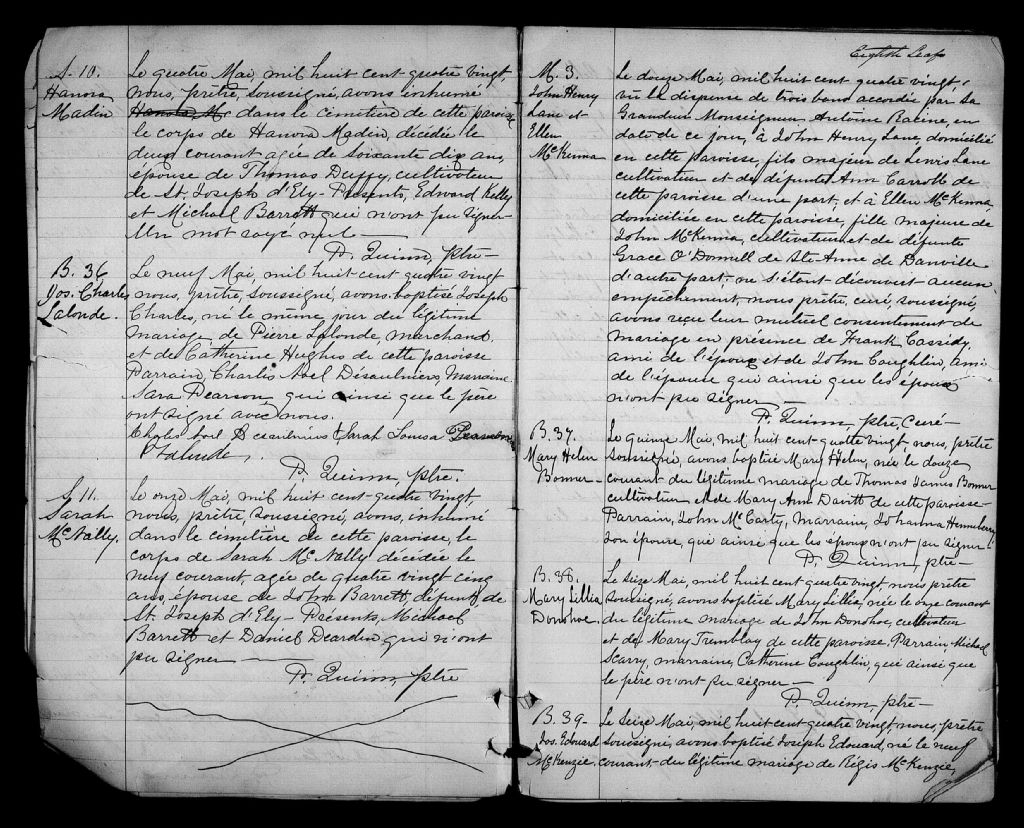 S. 10.
Hanora
Madin
Le quatre Mai, mil huit cent quatre vingt,
nous, prêtre, soussigné, avons inhumé
dans le cimetière de cette paroisse
le corps de Hanora Madin, décédée le
deux courant agée de soixante dix ans,
épouse de Thomas Duffy, cultivateur
de St. Joseph d'Ely - Présents, Edward Kelly
et Michael Barrett qui n'ont pu signer -
Un mot rayé nul -
P. Quinn, ptre -
B. 36
Jos. Charles
Lalonde.
Le neuf Mai, mil huit-cent quatre vingt
nous, prêtre, soussigné, avons baptisé Joseph
Charles, né le même jour du légitime
mariage de Pierre Lalonde, marchand,
et de Catherine Hughes de cette paroisse
Parrain, Charles Noel Désaulniers, Marraine
Sara Pearson, qui ainsi que le père
ont signé avec nous.
Chs Noel Desaulniers Sarah Louisa Pearson
P Lalonde
P. Quinn, ptre.
S. 11.
Sarah
McNally.
Le onze Mai, mil huit cent quatre vingt,
nous, prêtre, soussigné, avons, inhumé
dans le cimetière de cette paroisse, le
corps de Sarah McNally décédée le
neuf courant, agée de quatre vingt cinq
ans, épouse de John Barrett, défunt, de
St. Joseph d'Ely - Présents, Michael
Barrett et Daniel Deardin qui n'ont
pu signer -
P. Quinn, ptre
Eighth Leaf
M. 3.
John Henry
Lane et
Ellen
McKenna
Le douze Mai, mil huit cent quatre vingt,
vû la dispense de trois bans accordée par Sa
Grandeur Monseigneur Antoine Racine, en
date de ce jour, à John Henry Lane, domicilié
en cette paroisse, fils majeur de Lewis Lane
cultivateur et de défunte Ann Carroll de
cette paroisse d'une part, et à Ellen McKenna,
domiciliée en cette paroisse, fille majeure de
John McKenna, cultivateur, et de défunte
Grace O'Donnell de Ste. Anne de Danville
d'autre part, ne s'étant découvert aucun
empêchement, nous prêtre, curé, soussigné,
avons reçu leur mutuel consentement de
mariage en présence de Frank Cassidy,
ami de l'époux et de John Coughlin, ami
de l'épouse qui ainsi que les époux
n'ont pu signer -
P. Quinn, ptre, Curé -
B. 37.
Mary Helen
Bonner -
Le quinze Mai, mil huit cent-quatre vingt, nous, prêtre
soussigné, avons baptisé Mary Helen, née le douze
courant du légitime mariage de Thomas James Bonner
cultivateur et de Mary Ann Davitt de cette paroisse -
Parrain, John McCarty, Marraine, Johanna Hennebery
son épouse, qui ainsi que les époux n'ont pu signer -
P. Quinn, ptre -
B. 38.
Mary Lillia
Donohoe.
Le seize Mai, mil huit cent quatre vingt, nous prêtre
soussigné, avons baptisé Mary Lillia, née le onze courant
du légitime mariage de John Donohoe, cultivateur
et de Mary Tremblay de cette paroisse, Parrain Michael
Scarry, marraine, Catherine Coughlin, qui ainsi que
le père n'ont pu signer -
P. Quinn, ptre -
B. 39 -
Jos. Edouard
McKenzie.
Le seize Mai, mil huit cent quatre vingt, nous, prêtre
soussigné, avons baptisé Joseph Edouard, né le neuf
courant du légitime mariage de Régis McKenzie,